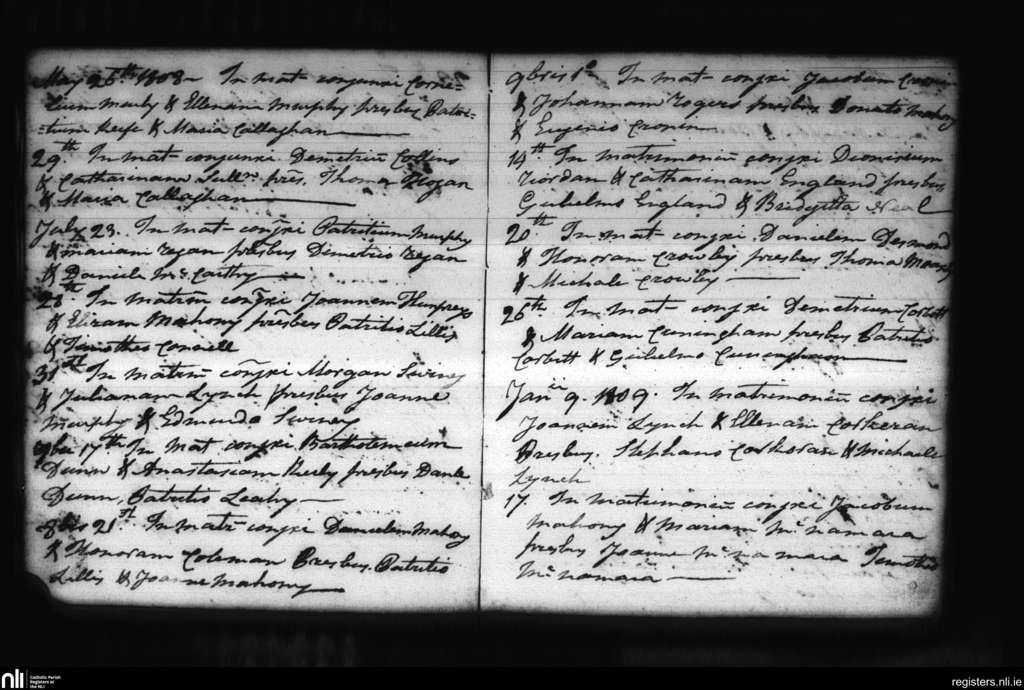 May 26th 1808 In mat- conjunxi Corne-
lium Mealy & Ellenam Murphy presbus Patri-
-tium Keefe & Maria Callaghan
29th In mat- conjunxi Demetriu Collins
& Catharinam pres. Thoma Hogan
& Maria Callaghan
July 23. In mat- conjxi Patritium Murphy
& Mariam Regan presbus Demetrio Regan
& Daniele Mc Carthy
28th In matrim conjxi Joannem Humfrey
& Elizam Mahony presbus Patritio Lillis
& Timotheo Connell
31st In matrim conjxi Morgan Swiney
& Julianam Lynch presbus Joanne
Murphy & Edmundo Swiney
17th In Mat conjxi Bartholemeum
Dunn & Anastasiam presbus
Dunn, Patritio Leahy
8bris 21st In Matr- conjxi Danielem Mahony
& Honoram Coleman Presbus. Patritio
Lillis & Joanne Mahony
9bris 1o In Mat- conjxi Jacobum Cronin
& Johannam Rogers presbus Donato Mahony
& Eugenio Cronin
14th In matrimoniu conjxi Dionisium
Riordan & Catharinam England presbus
Gulielmo England & Bridgitta Neal
20th In Mat- conjxi Danielem Desmond
& Honoram Crowley presbus Thoma
& Michale Crowley
26th In Mat- conjxi Demetrium Corbitt
& Mariam Cuningham presbus Patritio
Corbitt & Gulielmo Cuningham
Janii 9. 1809. In matrimoniu conjxi
Joannem Lynch & Ellenam Corkeran
Presbus. Stephano Corkoran & Michaele
Lynch
17. In matrimoniu conjxi Jacobum
Mahony & Mariam Mc namara
presbus Joanne Mc na mara Timotheo
Mc namara
nli
Catholic Parish
Registers at
the NLI
registers.nli.ie